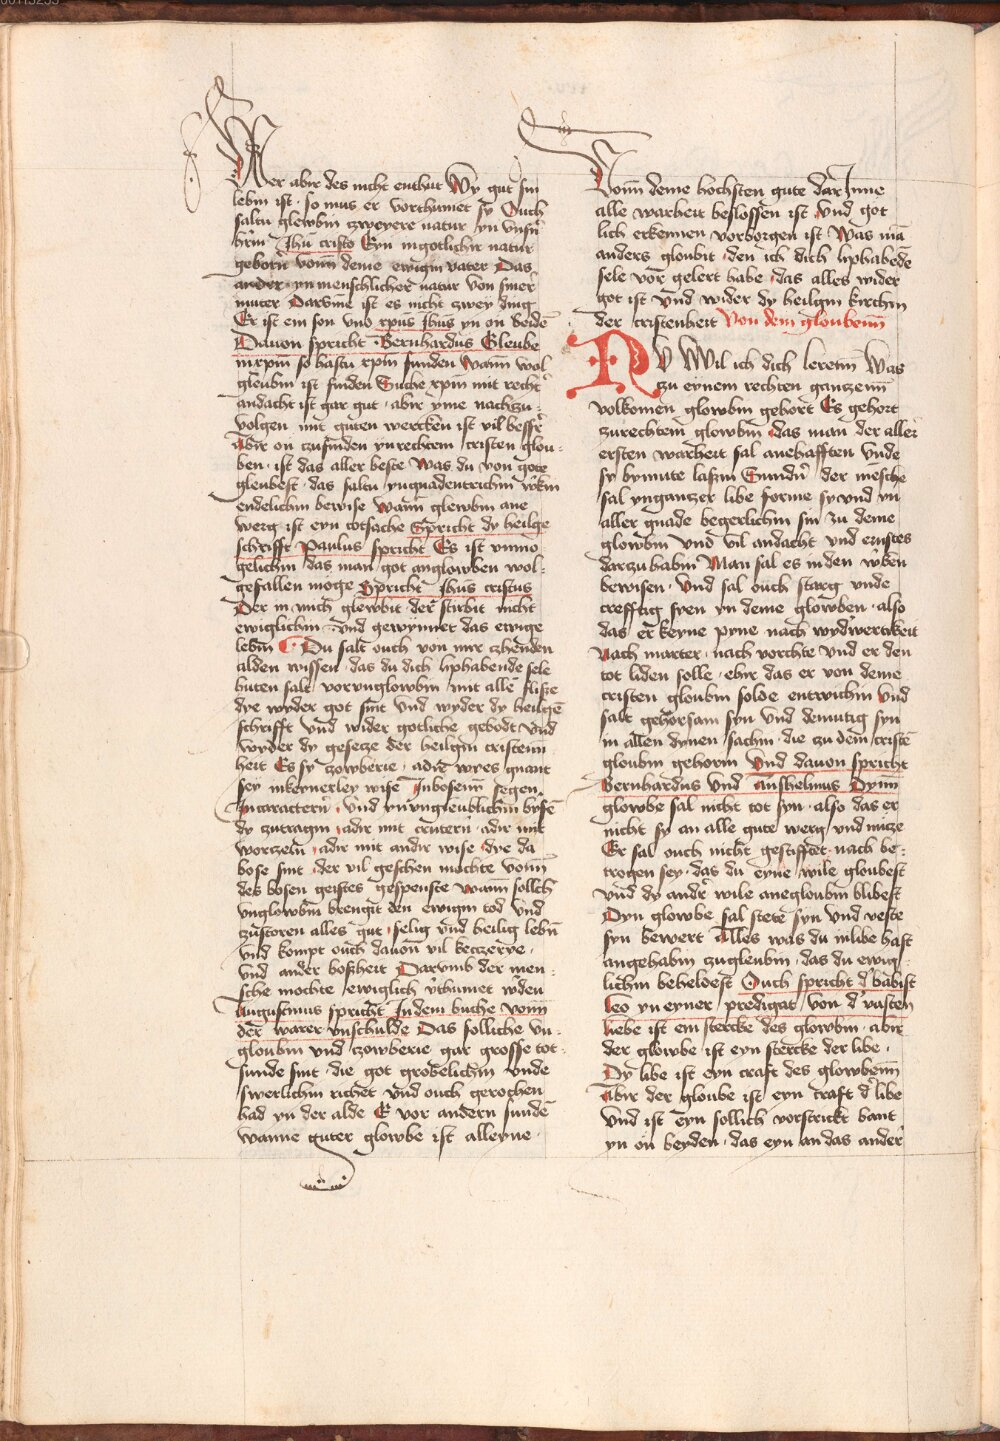 Wer abir des nicht enthut Wy gut sin
lebin ist · so mus er vorthumet sy Ouch
saltu glewbin zweyere natur yn vnsn̄
hērn Jhū cristo Eyn ingotlichir natur
geborn̄ vonn deme ewigin vater Das
ander yn menschlicher natur von siner
muter Darvm̄e ist es nicht zwey ding
Er ist ein son vnd xpūs Jhūs yn on beidē
Dauon spricht · Bernhardus Gleube
inxpm̄ so hastu xpm̄ funden Wann wol
gleubin ist finden Suche xpm̄ mit recht̄
andacht ist gar gut · abir yme nachzu ·
volgen mit guten wercken ist vil bess̄
Abir on zufinden yn rechtem cristen glou ·
ben · ist das aller beste Was du von gote
gleubest · das saltu yngnadentrichin w̄kin
endelichin bewise Wann glewbin ane
werg ist eyn totsache Spricht dy heilge
schrifft Paulus spricht Es ist vnmo
gelichin das man got anglowben wol ·
gefallen moge Spricht Jhūs cristus
Der in mich glewbit · der stirbit nicht
ewiglichin · vnd gewynnet das ewige
lebin Du salt ouch von mir czhenden
alden wissen · das du dich liphabende sele
huten salt vorvnglowbin mit allē flisze
dye wyder got sint Vnd wyder dy heilgē
schrifft vnd wider gotliche gebodt Vnd
wyder dy gesetze der heilgin cristenn
heit Es sy zowberie · adir wyes gnant
sey inkeynerley wise Jnbosenn segen
Jncaracterñ · Vnd yn vngleublichin bysē
dy zutragin · adir mit crutern̄ · adir mit
worczeln · adir mit andir wise · dye da
bose sint · der vil geschen mochte vonn
des bosen geistes gespenste Wann sollich
vnglowbin brengit den ewigin tod Vnd
zustoren alles gut · selig vnd heilig lebn̄
vnd kompt ouch dauon vil keczerye ·
vnd ander boszheit Darvmb der men ·
sche mochte ewiglich v̄thumet w̄den
Augustinus spricht Jndem buche vonn
der warer vnschulde Das solliche vn ·
gloubin vnd zowberie gar grosse tot ·
sunde sint · die got grobelichin vnde
swerlichin richet vnd ouch gerochen
had yn der alde E vor andern sundē
wanne guter glowbe ist alleyne ·
Vonn deme hochsten gute dar Jnne
alle warheit beslossen ist Vnd got
lich erkennen vorborgen ist Was mā
anders gloubit · den ich dich liphabēde
sele vor gelert habe · das alles wider
got ist vnd wider dy heilgin kirchin
der cristenheit Von dem gloubenn
NV Wil ich dich lerenn Was
zu eynem rechten ganzenn
volkomen glowbin gehort Es gehort
zurechtem glowbin · das man der aller
ersten warheit sal anehafften Vnde
sy bynnute lasin Sundn̄ der mēsche
sal ynganczer libe forme sy vnd yn
aller gnade begerlichin sin zu deme
glowbin vnd vil andacht vnd ernstes
darzu habin Man sal es inden w̄ken
bewisen · Vnd sal ouch starg vnde
crefftig syen yn deme glowben · also
das er keyne pyne nach wydwertikeit
Nach marter · nach vorchte Vnd er den
tot liden solle · ehir das er von deme
cristen gloubin solde entwichin Vnd
salt gehorsam syn vnd demutig syn
in allen dynen sachin · die zu dem cristē
gloubin gehorin Vnd dauon spricht
Bernhardus Vnd Anshelmus Dynn
glowbe sal nicht tot syn · also das er
nicht sy an alle gute werg vnd nucze
Er sal ouch nicht gestifftet nach be ·
trogen sey · das du eyne wile gloubest
vnd dy and̄ wile anegloubin blibest
Dyn glowbe sal stete syn vnd veste
syn bewert Alles was du inlibe hast
angehabin zugleubin · das du ewig
lichin beheldest Ouch spricht d̄ babist
Leo yn eyner predigat von d̄ vasten
Liebe ist ein stercke des glowbin · abir
der glowbe ist eyn stercke der libe ·
Dy libe ist eyn craft des glowbenn
Abir der gloube ist eyn craft d̄ libe
Vnd ist eyn sollich vorstrickt bant
yn on beyden · das eyn an das ander